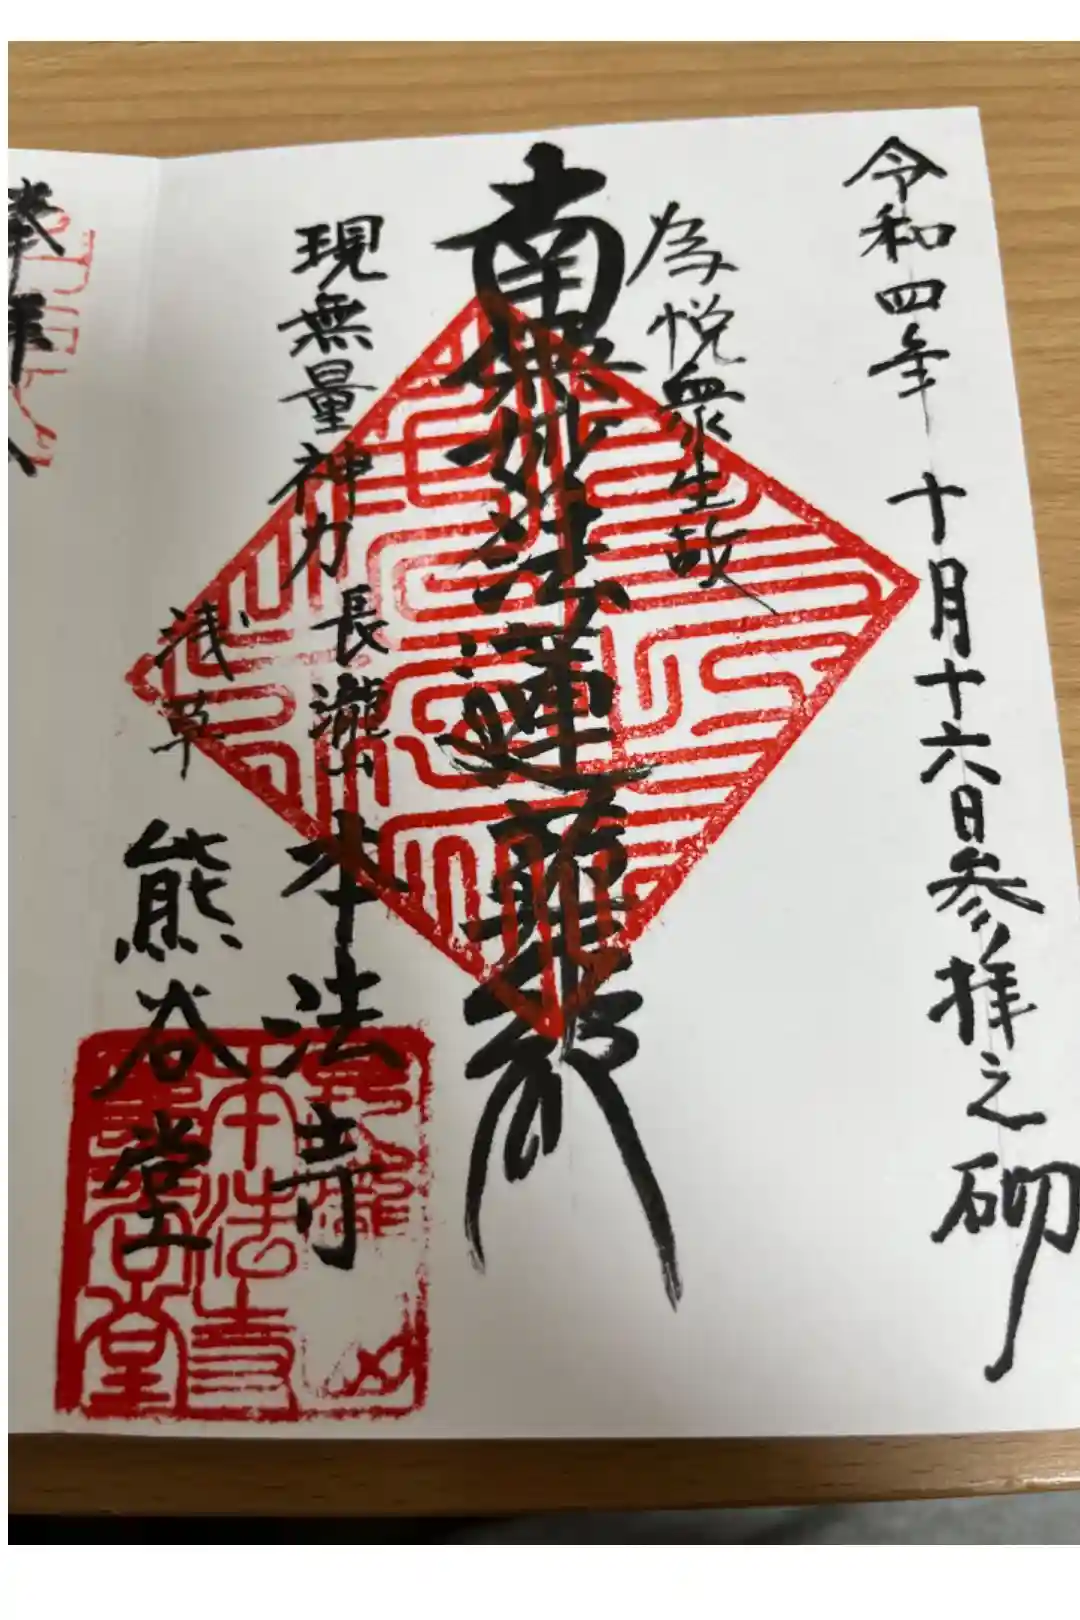 令和四年十月十六日参拝之砌
為悦衆生故
南無妙法蓮華経
現無量神力
長瀧山本法寺
浅草熊谷堂
本法寺
堂
奉拝